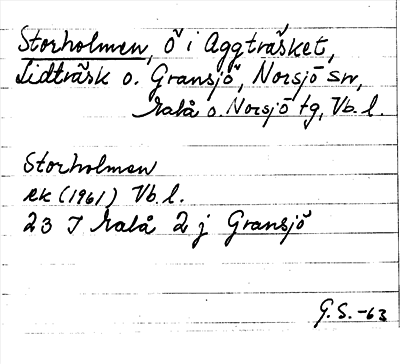 Storholmen, ö i Aggträsket,
Lidträsk o. Gransjö, Norsjö sn,
Malå o. Norsjö tg, Vb. l.
Storholmen
ek (1961) Vb. l.
23 I Malå 2 j Gransjö
G. S. -63